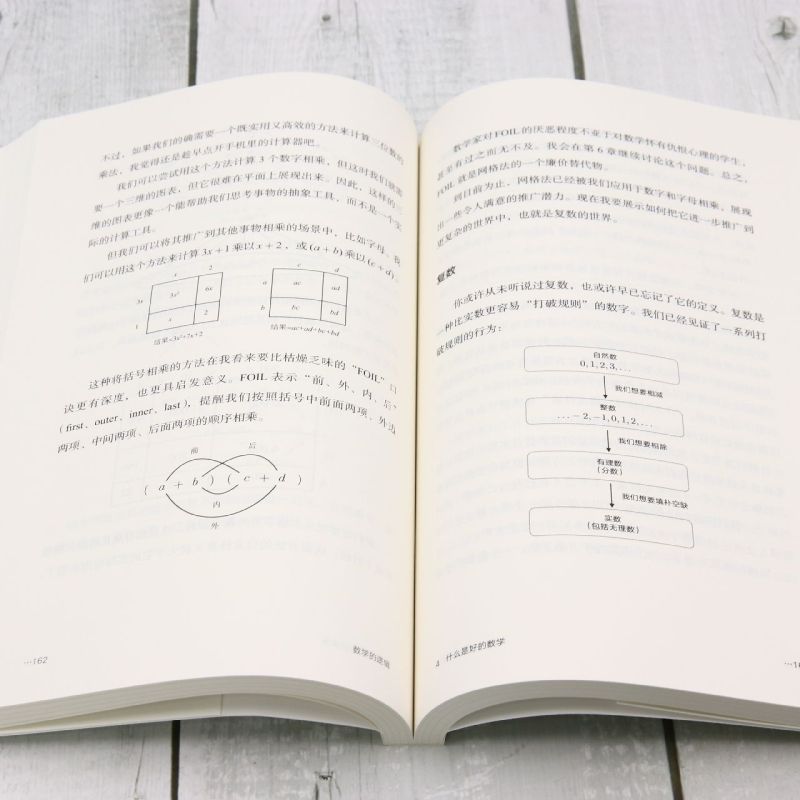 不过，如果我们的确需要一个既实用又高效的方法来计算三位数的
乘法，我觉得还是趁早点开手机里的计算器吧。
我们可以尝试用这个方法计算3个数字相乘，但这时我们就需
要一个三维的图表，但它很难在平面上展现出来。因此，这样的三
维的图表更像一个能帮助我们思考事物的抽象工具，而不是一个实
际的计算工具。
但我们可以将其推广到其他事物相乘的场景中，比如字母。我
们可以用这个方法来计算3x+1乘以x+2，或(a+b)乘以(c+d)。
x 2
3x 3x² 6x
1 x 2
结果=3x²+7x+2
c d
a ac ad
b bc bd
结果=ac+ad+bc+bd
这种将括号相乘的方法在我看来要比枯燥乏味的“FOIL”口
诀更有深度，也更具启发意义。FOIL表示“前、外、内、后”
（first、outer、inner、last），提醒我们按照括号中前面两项、外边
两项、中间两项、后面两项的顺序相乘。
前 后
(a+b)(c+d)
内
外
…162
数学的逻辑
数学家对FOIL的厌恶程度不亚于对数学怀有仇恨心理的学生，
甚至有过之而无不及。我会在第6章继续讨论这个问题。总之，
FOIL就是网格法的一个廉价替代物。
到目前为止，网格法已经被我们应用于数字和字母相乘，展现
出一些令人满意的推广潜力。现在我要展示如何把它进一步推广到
更复杂的世界中，也就是复数的世界。
复数
你或许从未听说过复数，也或许早已忘记了它的定义。复数是
一种比实数更容易“打破规则”的数字。我们已经见证了一系列打
破规则的行为：
自然数
0,1,2,3,...
我们想要相减
整数
...-2,-1,0,1,2,...
我们想要相除
有理数
（分数）
我们想要填补空缺
实数
（包括无理数）
4 什么是好的数学